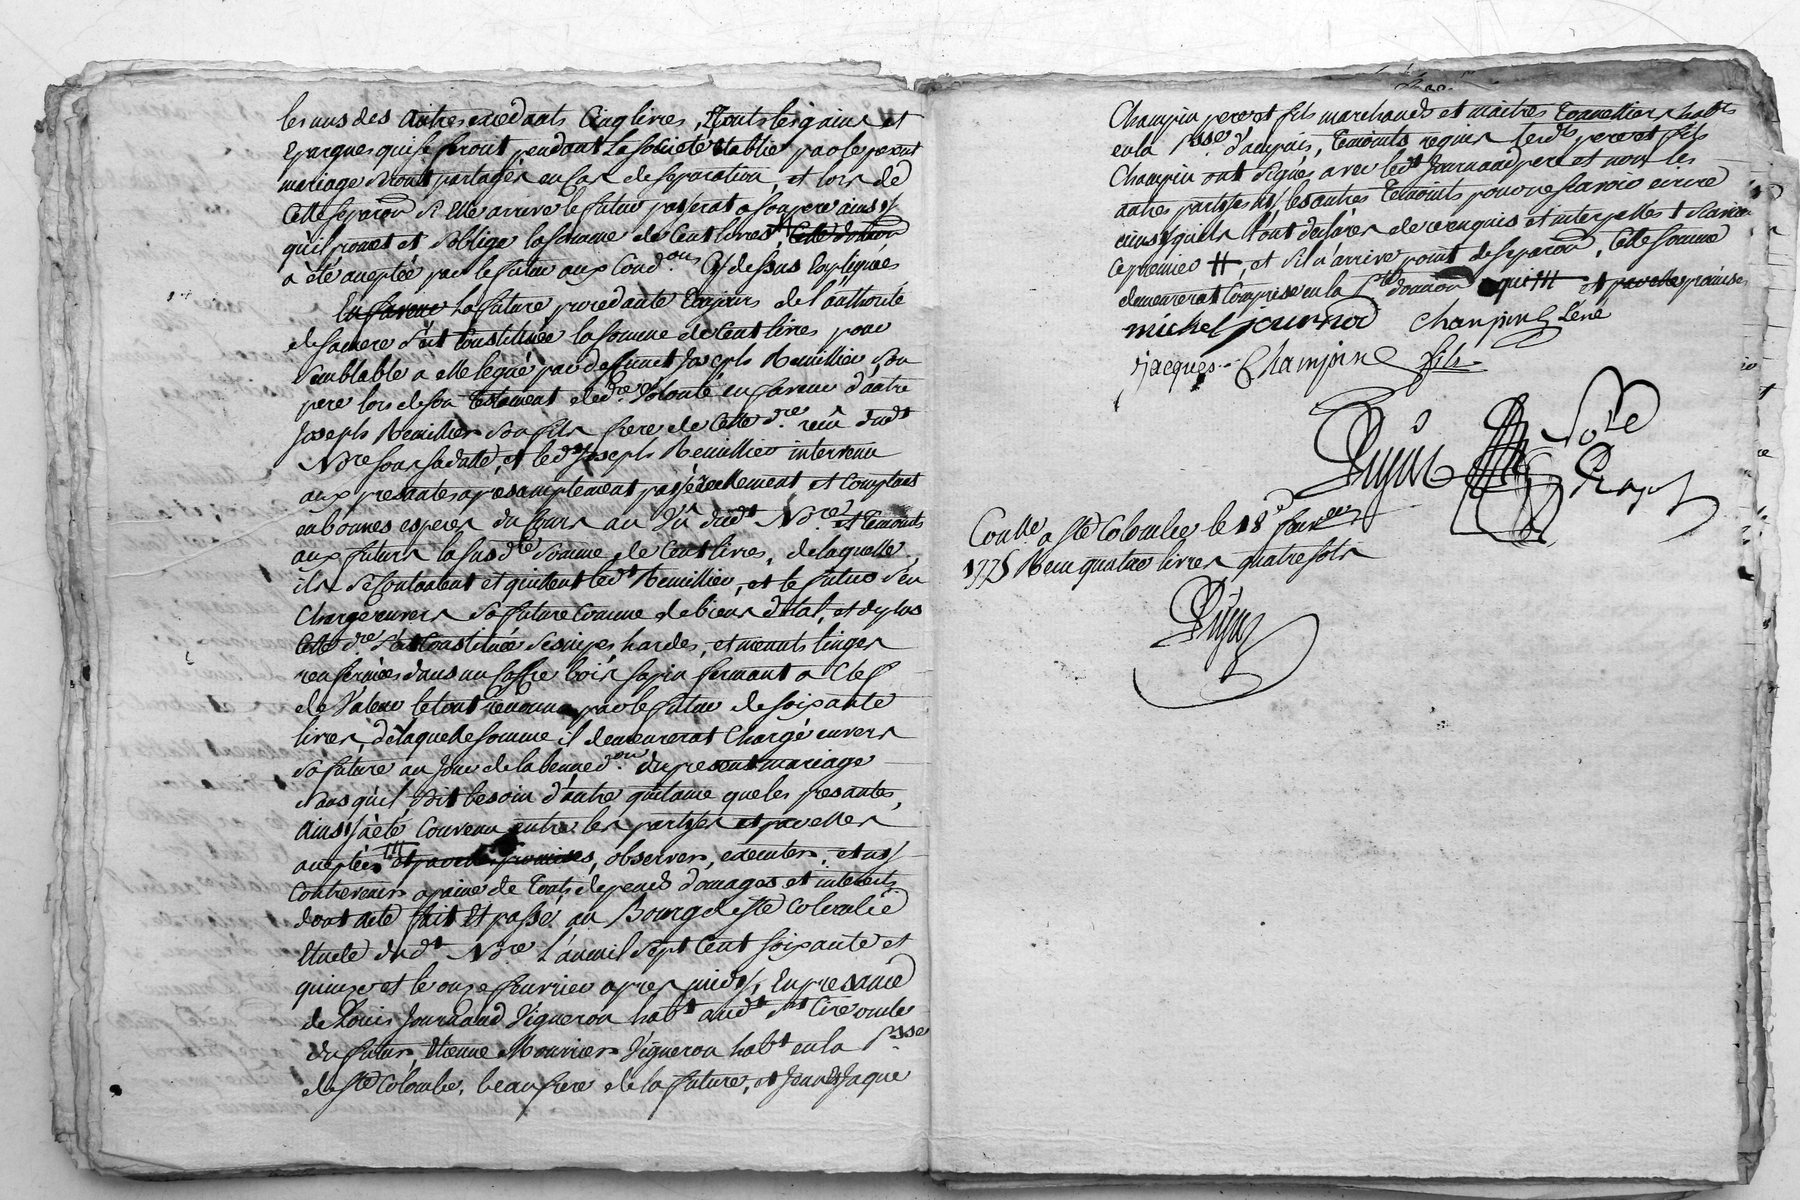 les uns des autres excedants Cinq livres, Touts les gains et
Epargnes qui se feront pendant La societé Etablie par le present
mariage seront partagés en Cas de separation, et lors de
Cette separaon si Elle arrive le futur passerat a son pere ainsy
qu'il promet et s'oblige la somme de Cent livres, Cette donaon
a été aceptée par le futur aux Condons Cy dessus Expliquées
En faveur La future procedante toujours de l'authorité
de sa mere s'est Constituée la somme de Cent livres pour
semblable a elle legué par defunct Joseph Remillier son
pere lors de son testament et dre volonté en faveur d'autre
Joseph Remillier son fils frere de Cette dre recu dudt
Nore sous sa datte, et ledt Joseph Remillier intervenu
aux presantes a presamptement payé reellement et Comptant
en bonnes especes du Cours au Vû dudt Nore et temoints
aux futurs la susdte somme de Cent livres, de laquelle
ils se Contentent et quittent ledt Remillier, et le futur s'en
Charge envers sa future Comme de biens dotal, et de plus
Cette dre s'est Constituée ses nipes, hardes, et menuts linges
renfermées dans un Coffre bois sapin fermant a Clef
de Valeur le tout reconnu par le futur de soixante
livres, de laquelle somme il demeurerat Chargé envers
sa future au jour de la bennedon du present mariage
sans qu'il soit besoin d'autre quitance que les presantes,
Ainsy a été Convenu entre les partyes et par elles
aceptées et par elles promises, observer, executer, et n'y
Contrevenir a paine de touts depends domages et interets
dont acte fait et passé au Bourg de Ste Colombe
Etude dudt Nore L'an mil sept Cent soixante et
quinze et le onze fevrier apres midy, En presance
de Louis Journaud Vigneron habt audt St Cire oncle
du futur, Etienne Mourier Vigneron habt en la Psse
de Ste Colombe, beaufrere de la future, et Jean et Jaque
Champin pere et fils marchands et maitres Tonnelliers habts
en la Psse d'ampuis, Temoints requis lesdts pere et fils
Champin ont signés avec ledt Journaud pere et non les
autres partyes ny les autres Temoints pour ne scavoir ecrire
ainsy qu'ils l'ont declarés de ce enquis et interpellés
Ce premier #, et s'il n'arrive point de separaon, Cette somme
demeurerat Comprise en la pte donaon et par elle promises
michel journod Champin Pere
jacques Champin fils
Dujas Nore
Royal
Conlle a Ste Colombe le 18e fevrier
1775 Recu quatre livres quatre sols
Dujas